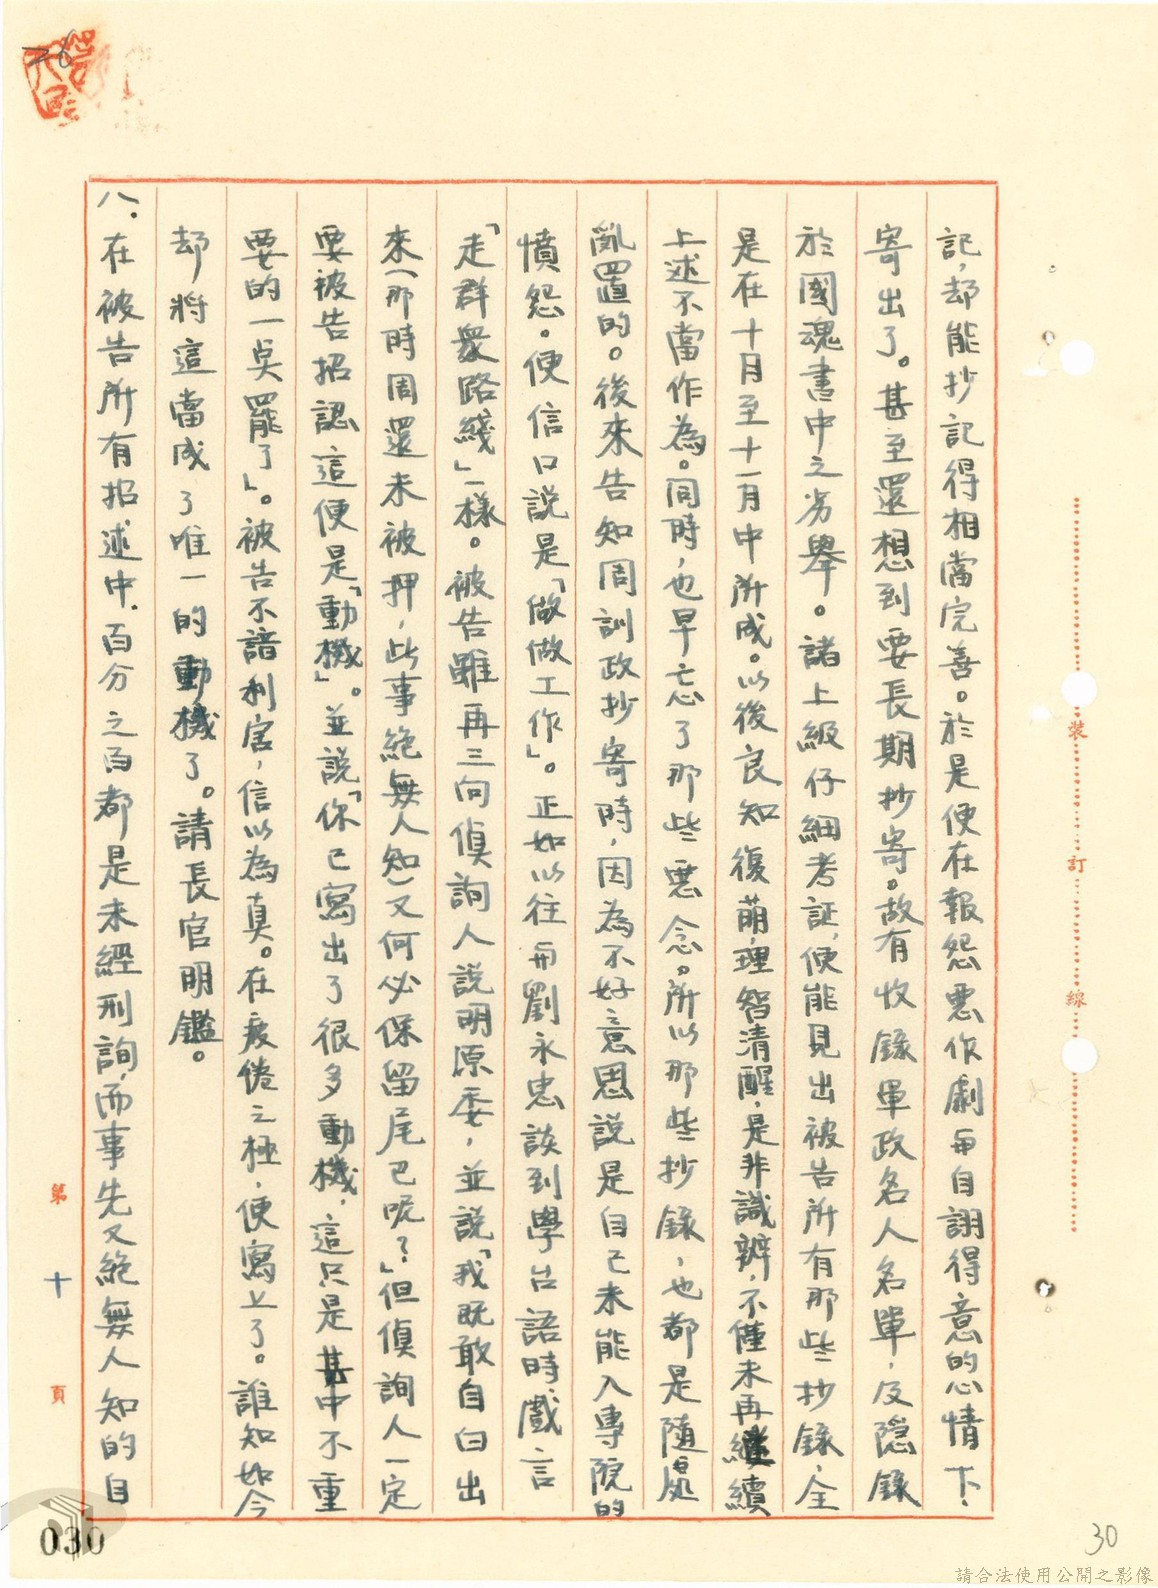 26
記，却能抄記得相當完善。於是便在報怨惡作劇與自詡得意的心情下，
寄出了。甚至還想到要長期抄寄。故有收錄軍政名人名單，及隱錄
於國魂書中之劣舉。諸上級仔細考証，便能見出被告所有那些抄錄，全
是在十月至十一月中所成。以後良知復萌，理智清醒，是非識辨，不僅未再繼續
上述不當作為。同時，也早忘了那些惡念。所以那些抄錄，也都是隨處
亂置的。後來告知周訓政抄寄時，因為不好意思說是自己未能入專院的
憤怨。便信口說是「做做工作」。正如以往與劉永忠談到學台語時戲言
「走群衆路綫」一樣。被告雖再三向偵詢人說明原委，並說「我既敢自白出
來（那時周還未被押，此事絕無人知）又何必保留尾巴呢？」但偵詢人一定
要被告招認這便是「動機」。並說「你已寫出了很多動機，這只是其中不重
要的一点罷了」。被告不諳利害，信以為真。在疲倦之極，便寫上了。誰知如今
却將這當成了唯一的動機了。請長官明鑑。
八．在被告所有招述中，百分之百都是未經刑詢，而事先又絕無人知的自
裝
訂
線
第十頁
030
30
請合法使用公開之影像